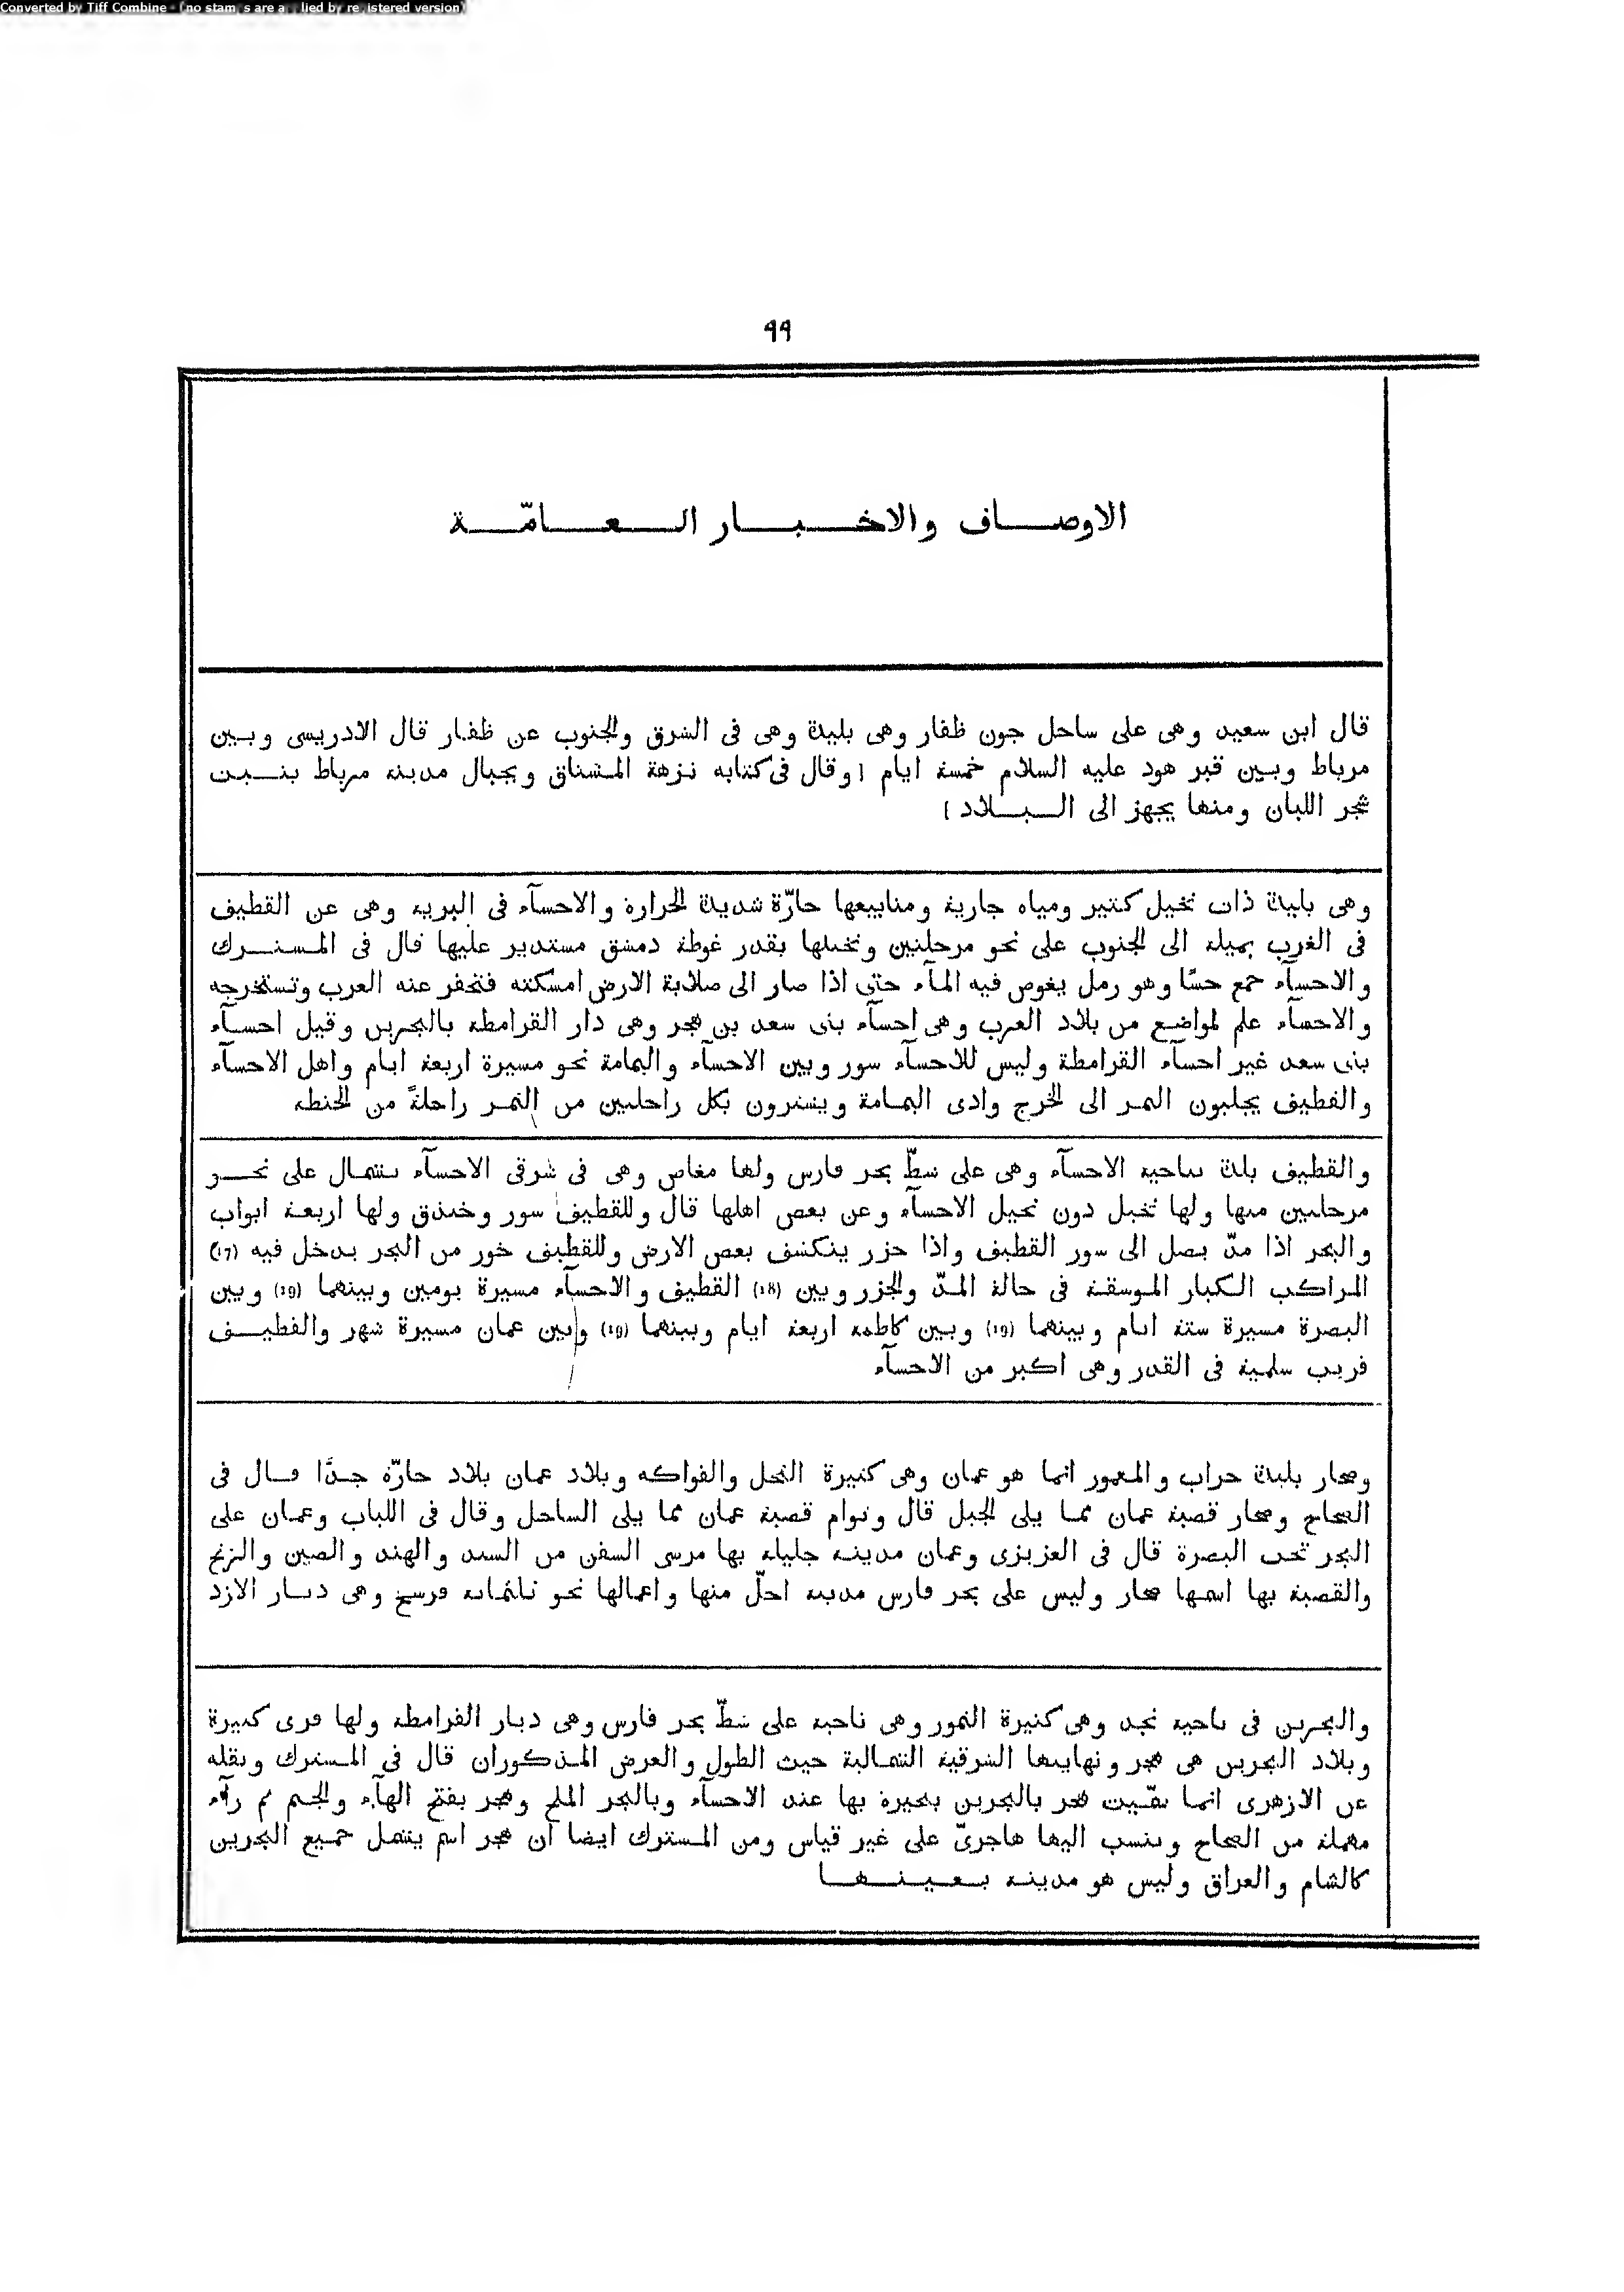 Converted by Tiff Combine - (no stamps are applied by registered version)
٩٩
الاوصاف والاخبار العامّة
قال ابن سعيد وهى على ساحل جون ظفار وهى بليدة وهى فى الشرق والجنوب عن ظفار قال الادريسى وبين
مرباط وبين قبر هود عليه السلام خمسة ايام [وقال فى كتابه نزهة المشتاق وبجبال مدينة مرباط ينبت
شجر اللبان ومنها يجهز الى البلاد]
وهى بليدة ذات نخيل كثير ومياه جارية ومنابيعها حارّة شديدة الحرارة والاحسآء فى البرية وهى عن القطيف
فى الغرب بميلة الى الجنوب على نحو مرحلتين ونخيلها بقدر غوطة دمشق مستدير عليها قال فى المشترك
والاحسآء جمع حسًا وهو رمل يغوص فيه المآء حتى اذا صار الى صلابة الارض امسكته فتحفر عنه العرب وتستخرجه
والاحسآء علم لمواضع من بلاد العرب وهى احسآء بنى سعد بن هجر وهى دار القرامطة بالبحرين وقيل احسآء
بنى سعد غير احسآء القرامطة وليس للاحسآء سور وبين الاحسآء واليمامة نحو مسيرة اربعة ايام واهل الاحسآء
والقطيف يجلبون التمر الى الخرج وادى اليمامة ويشترون بكل راحلتين من التمر راحلةً من الحنطة
والقطيف بلدة بناحية الاحسآء وهى على شطّ بحر فارس ولها مغاص وهى فى شرقى الاحسآء بشمال على نحو
مرحلتين منها ولها نخيل دون نخيل الاحسآء وعن بعض اهلها قال وللقطيف سور وخندق ولها اربعة ابواب
والبحر اذا مدّ يصل الى سور القطيف واذا جزر ينكشف بعض الارض وللقطيف خور من البحر يدخل فيه (17)
المراكب الكبار الموسقة فى حالة المدّ والجزر وبين (18) القطيف والاحسآء مسيرة يومين وبينهما (19) وبين
البصرة مسيرة ستة ايام وبينهما (19) وبين كاظمة اربعة ايام وبينهما (19) وبين عمان مسيرة شهر والقطيف
قريب سلمية فى القدر وهى اكبر من الاحسآء
وصحار بليدة خراب والمعمور انما هو عمان وهى كثيرة النخل والفواكه وبلاد عمان بلاد حارّة جدًّا قال فى
الصحاح وصحار قصبة عمان مما يلى الجبل قال وتوام قصبة عمان مما يلى الساحل وقال فى اللباب وعمان على
البحر تحت البصرة قال فى العزيزى وعمان مدينة جليلة بها مرسى السفن من السند والهند والصين والزنج
والقصبة بها اسمها صحار وليس على بحر فارس مدينة اجلّ منها واعمالها نحو ثلثماية فرسخ وهى ديار الازد
والبحرين فى ناحية نجد وهى كثيرة التمور وهى ناحية على شطّ بحر فارس وهى ديار القرامطة ولها قرى كثيرة
وبلاد البحرين هى هجر ونهايتها الشرقية الشمالية حيث الطول والعرض المذكوران قال فى المشترك ونقله
عن الازهرى انما سمّيت هجر بالبحرين بحيرة بها عند الاحسآء وبالبحر الملح وهجر بفتح الهآء والجيم ثم رآء
مهملة من الصحاح وينسب اليها هاجرىّ على غير قياس ومن المشترك ايضا ان هجر اسم يشمل جميع البحرين
كالشام والعراق وليس هو مدينة بعينها